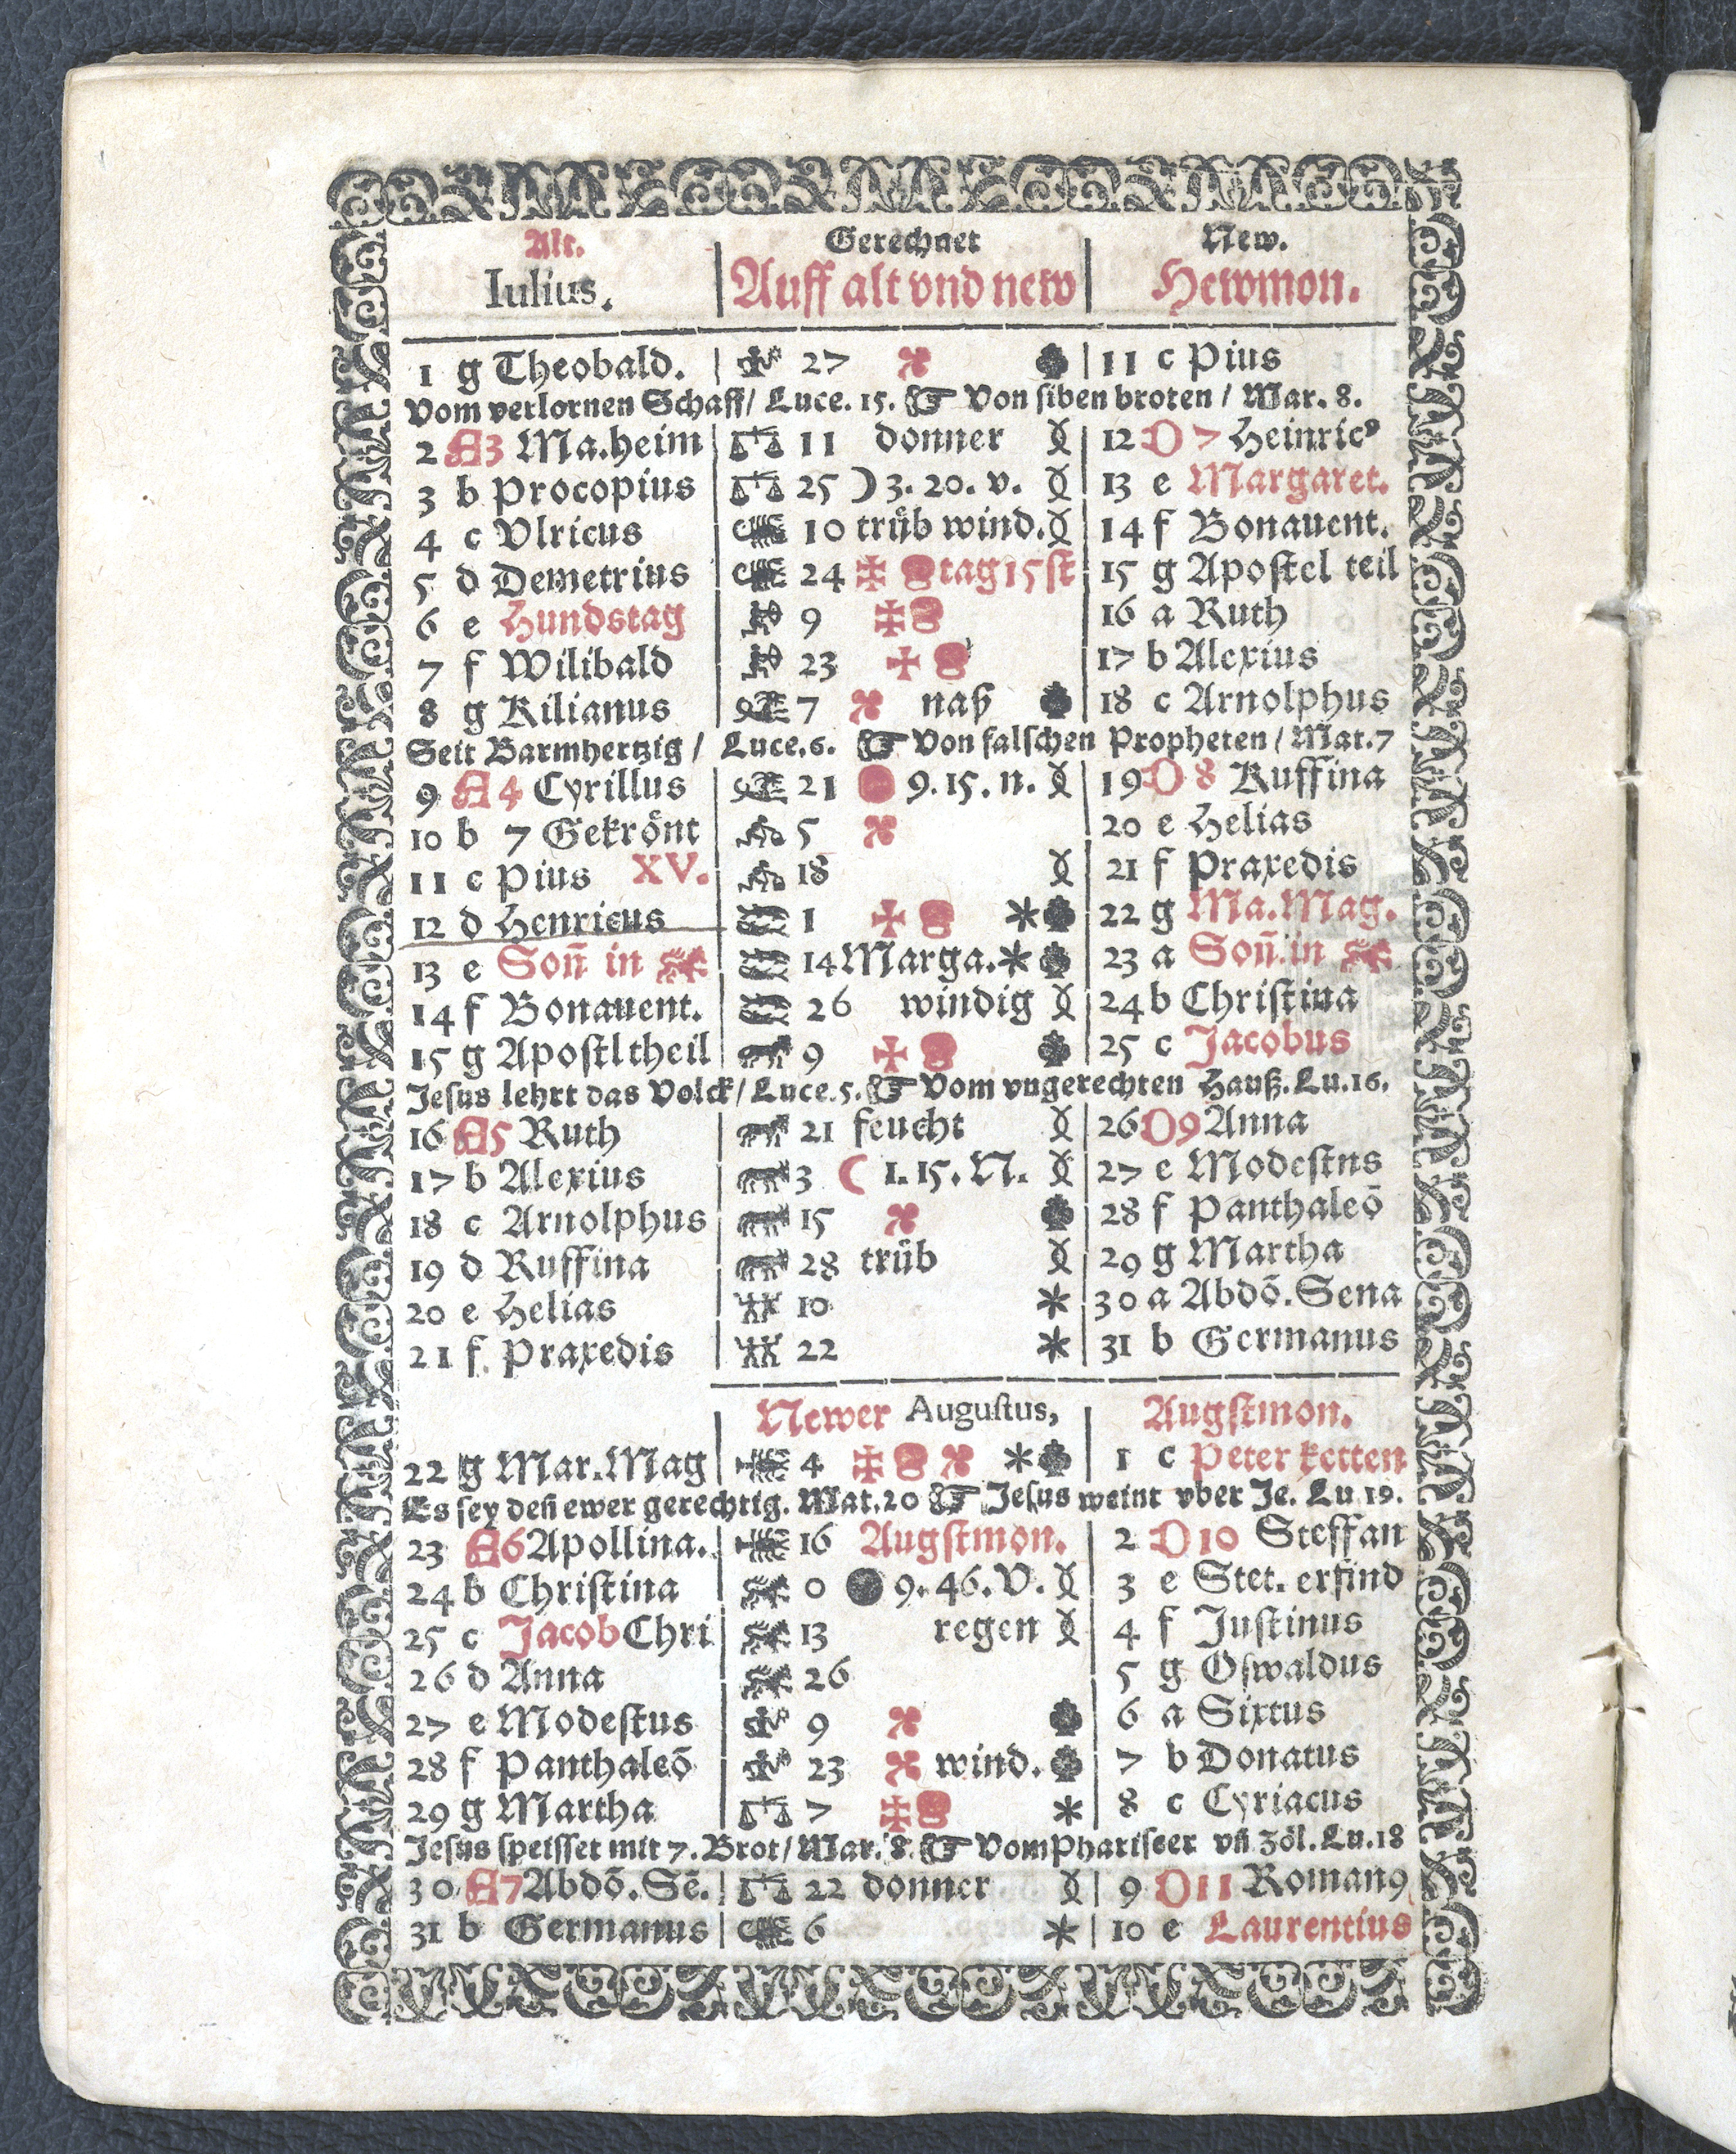 Alt. Gerechnet New.
Iulius. Auff alt vnd new Hewmon.
1 g Theobald. 27 11 c Pius
Vom verlornen Schaff/ Luce. 15. ☞ Von siben broten / Mar. 8.
2 A3 Ma.heim 11 donner 12 D 7 Heinricꝰ
3 b Procopius 25 ) 3. 20. v. 13 e Margaret.
4 c Vlricus 10 trüb wind. 14 f Bonauent.
5 d Demetrius 24 tag 15 st 15 g Apostel teil
6 e Hundstag 9 16 a Ruth
7 f Wilibald 23 17 b Alexius
8 g Kilianus 7 naß 18 c Arnolphus
Seit Barmhertzig / Luce.6. ☞ Von falschen Propheten / Mat.7
9 A 4 Cyrillus 21 9. 15. n. 19 D 8 Ruffina
10 b 7 Gekrönt 5 20 e Helias
11 c Pius XV. 18 21 f Praxedis
12 d Henricus 1 22 g Ma. Mag.
13 e Soñ in 14 Marga. 23 a Soñ in
14 f Bonauent. 26 windig 24 b Christina
15 g Apostltheil 9 25 c Jacobus
Jesus lehrt das Volck/ Luce.5. ☞ Vom vngerechten Hauß. Lu.16.
16 A5 Ruth 21 feucht 26 D9 Anna
17 b Alexius 3 ☾ 1. 15. N. 27 e Modestns
18 c Arnolphus 15 28 f Panthaleō
19 d Ruffina 28 trüb 29 g Martha
20 e Helias 10 30 a Abdō. Sena
21 f Praxedis 22 31 b Germanus
Newer Augustus, Augstmon.
22 g Mar. Mag 4 1 c Peter ketten
Es sey deñ ewer gerechtig. Mat.20 ☞ Jesus weint vber Je. Lu 19.
23 A6 Apollina. 16 Augstmon. 2 D 10 Steffan
24 b Christina 0 9. 46. V. 3 e Stet. erfind
25 c Jacob Chri 13 regen 4 f Justinus
26 d Anna 26 5 g Oswaldus
27 e Modestus 9 6 a Sixtus
28 f Panthaleō 23 wind. 7 b Donatus
29 g Martha 7 8 c Cyriacus
Jesus speisset mit 7. Brot/ Mar. 8. ☞ Vom Phariseer vñ Zöl. Lu.18
30 A7 Abdō. Sē. 22 donner 9 D 11 Romanꝰ
31 b Germanus 6 10 e Laurentius